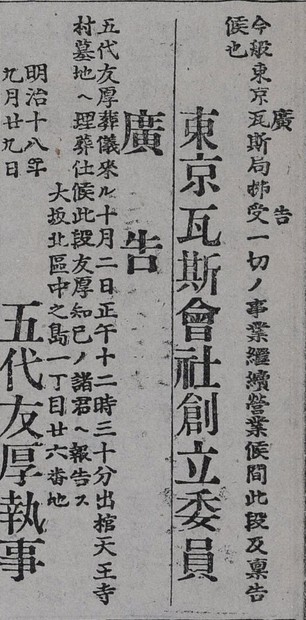 廣告
今般東京瓦斯局拂受一切ノ事業繼續營業候間此段及稟告
候也
東京瓦斯會社創立委員
廣告
五代友厚葬儀來ル十月二日正午十二時三十分出棺天王寺
村墓地ヘ埋葬仕候此段友厚知己ノ諸君ヘ報告ス
大坂北區中之島一丁目廿六番地
明治十八年
九月廿九日
五代友厚執事